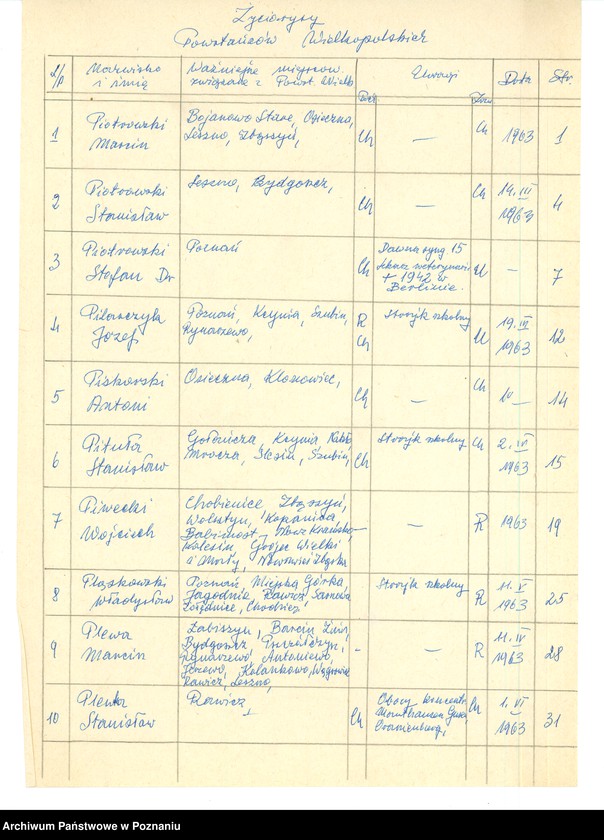 Życiorysy
Powstańców Wielkopolskich
L/p Nazwisko i imię Ważniejsze miejscow. związane z Powst. Wielk. Uwagi Data Str.
1 Piotrowski Marcin Bojanowo Stare, Osieczna, Leszno, Zbąszyń, Ch — Ch 1963 1
2 Piotrowski Stanisław Leszno, Bydgoszcz, Ch — Ch 14.III 1963 4
3 Piotrowski Stefan Dr Poznań Ch Dawna syng 15 lekarz weterynarii + 1942 w Berlinie. U — 7
4 Pilarczyk Józef Poznań, Kcynia, Szubin, Rynarzewo, R Ch Storójk szkolny U 1963 12
5 Piskorski Antoni Osieczna, Klonowiec, Ch — Ch 14
6 Pituła Stanisław Gołańcza, Kcynia, Nakło Mrocza, Ślesin, Szubin, Ch szkolny Ch 2.VI 1963 15
7 Piwecki Wojciech Chobienice, Zbąszyń, Wolsztyn, Kopanica Babimost, Nowe Kramsko Kolesin, Grójec Wielki i Mały, Nowowieś Zbąska — R 1963 19
8 Płaszkowski Władysław Poznań, Miejska Górka, Jagodnia, Rawicz, Sarnowa Chodzież szkolny R 11.V 1963 25
9 Plewa Marcin Łabiszyn, Barcin, Żnin, Bydgoszcz, Rynarzewo, Antoniewo, Kolankowo, Rawicz, Leszno, - — R 11.IV 1963 28
10 Plenta Stanisław Rawicz Ch Obozy koncentr. Mauthausen Gusen, Oranienburg, Ch 1.VI 1963 31
Archiwum Państwowe w Poznaniu